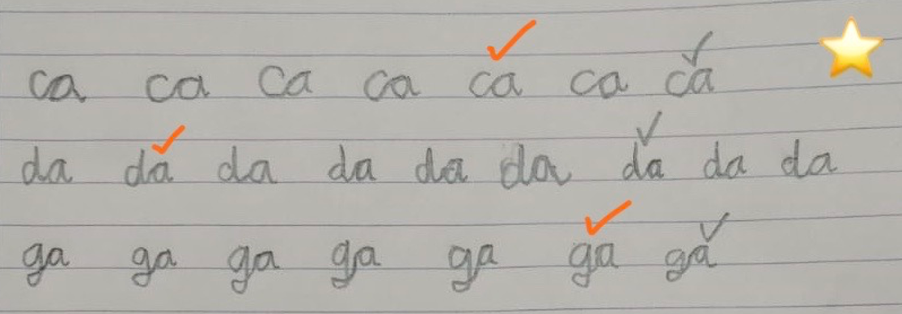 ca ca ca ca ca ca ca
da da da da da da da da da
ga ga ga ga ga ga ga